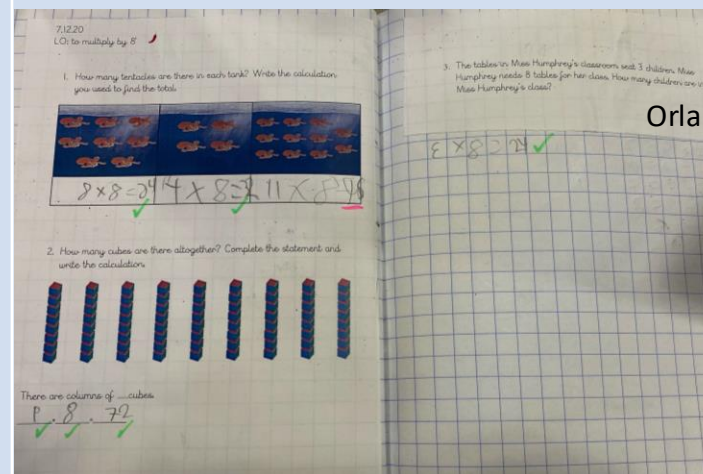 7.12.20
LO: to multiply by 8
1. How many tentacles are there in each tank? Write the calculation
you used to find the total.
8 × 8 = 24
4 × 8 =
11 × 8
2. How many cubes are there altogether? Complete the statement and
write the calculation.
There are columns of __cubes.
8 . 72
3. The tables in Miss Humphrey's classroom seat 3 children. Miss
Humphrey needs 8 tables for her class. How many children are
Miss Humphrey's class?
Orla
3 × 8 = 24